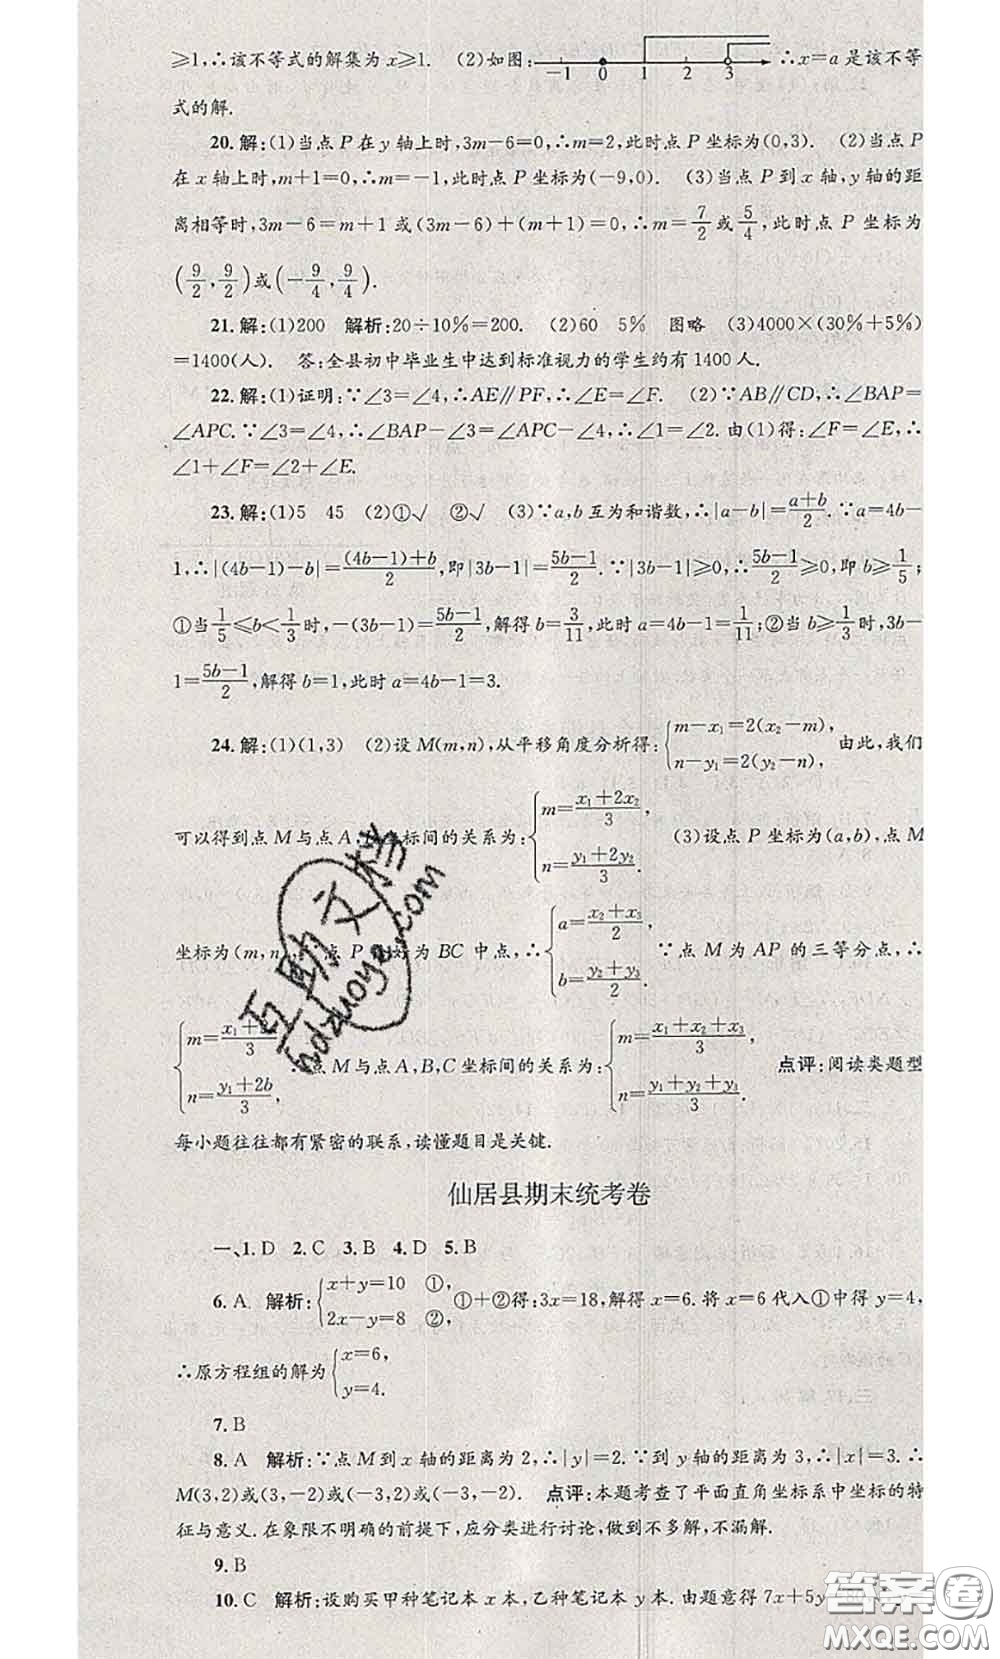 ≥1,∴该不等式的解集为 x≥1. (2)如图: -1 0 1 2 3 ∴x=a 是该不等
式的解.
20.解:(1)当点 P 在 y 轴上时,3m-6=0,∴m=2,此时点 P 坐标为(0,3). (2)当点 P
在 x 轴上时,m+1=0,∴m=-1,此时点 P 坐标为(-9,0). (3)当点 P 到 x 轴,y 轴的距
离相等时,3m-6=m+1 或(3m-6)+(m+1)=0,∴m=7/2或5/4,此时点 P 坐标为
(9/2,9/2)或(-9/4,9/4).
21.解:(1)200 解析:20÷10%=200. (2)60 5% 图略 (3)4000×(30%+5%)
=1400(人). 答:全县初中毕业生中达到标准视力的学生约有 1400 人.
22.解:(1)证明:∵∠3=∠4,∴AE∥PF,∴∠E=∠F. (2)∵AB∥CD,∴∠BAP=
∠APC.∵∠3=∠4,∴∠BAP-∠3=∠APC-∠4,∴∠1=∠2.由(1)得:∠F=∠E,∴
∠1+∠F=∠2+∠E.
23.解:(1)5 45 (2)①√ ②√ (3)∵a,b 互为和谐数,∴|a-b|=(a+b)/2.∵a=4b-
1,∴|(4b-1)-b|=((4b-1)+b)/2,即|3b-1|=(5b-1)/2.∵|3b-1|≥0,∴(5b-1)/2≥0,即 b≥1/5;
①当1/5≤b<1/3时,-(3b-1)=(5b-1)/2,解得 b=3/11,此时 a=4b-1=1/11;②当 b≥1/3时,3b-
1=(5b-1)/2,解得 b=1,此时 a=4b-1=3.
24.解:(1)(1,3) (2)设 M(m,n),从平移角度分析得:{m-x₁=2(x₂-m) n-y₁=2(y₂-n), 由此,我们
可以得到点 M 与点 A 坐标间的关系为:{m=(x₁+2x₂)/3, n=(y₁+2y₂)/3. (3)设点 P 坐标为(a,b),点 M
坐标为(m,n 点 P 好为 BC 中点,∴{a=(x₂+x₃)/2 b=(y₂+y₃)/2. ∵点 M 为 AP 的三等分点,∴
{m=(x₁+ )/3 n=(y₁+2b)/3, 点 M 与点 A,B,C 坐标间的关系为:{m=(x₁+x₂+x₃)/3, n=(y₁+y₂+y₃)/3. 点评:阅读类题型
每小题往往都有紧密的联系,读懂题目是关键.
仙居县期末统考卷
一、1.D 2.C 3.B 4.D 5.B
6.A 解析:{x+y=10 ①, 2x-y=8 ②, ①+②得:3x=18,解得 x=6.将 x=6 代入①中得 y=4,
∴原方程组的解为{x=6, y=4.
7.B
8.A 解析:∵点 M 到 x 轴的距离为 2,∴|y|=2.∵到 y 轴的距离为 3,∴|x|=3.∴
M(3,2)或(3,-2)或(-3,2)或(-3,-2). 点评:本题考查了平面直角坐标系中坐标的特
征与意义.在象限不明确的前提下,应分类进行讨论,做到不多解,不漏解.
9.B
10.C 解析:设购买甲种笔记本 x 本,乙种笔记本 y 本.由题意得 7x+5y
互助文档
hdzuoye.com
答案圈
MXQE.COM